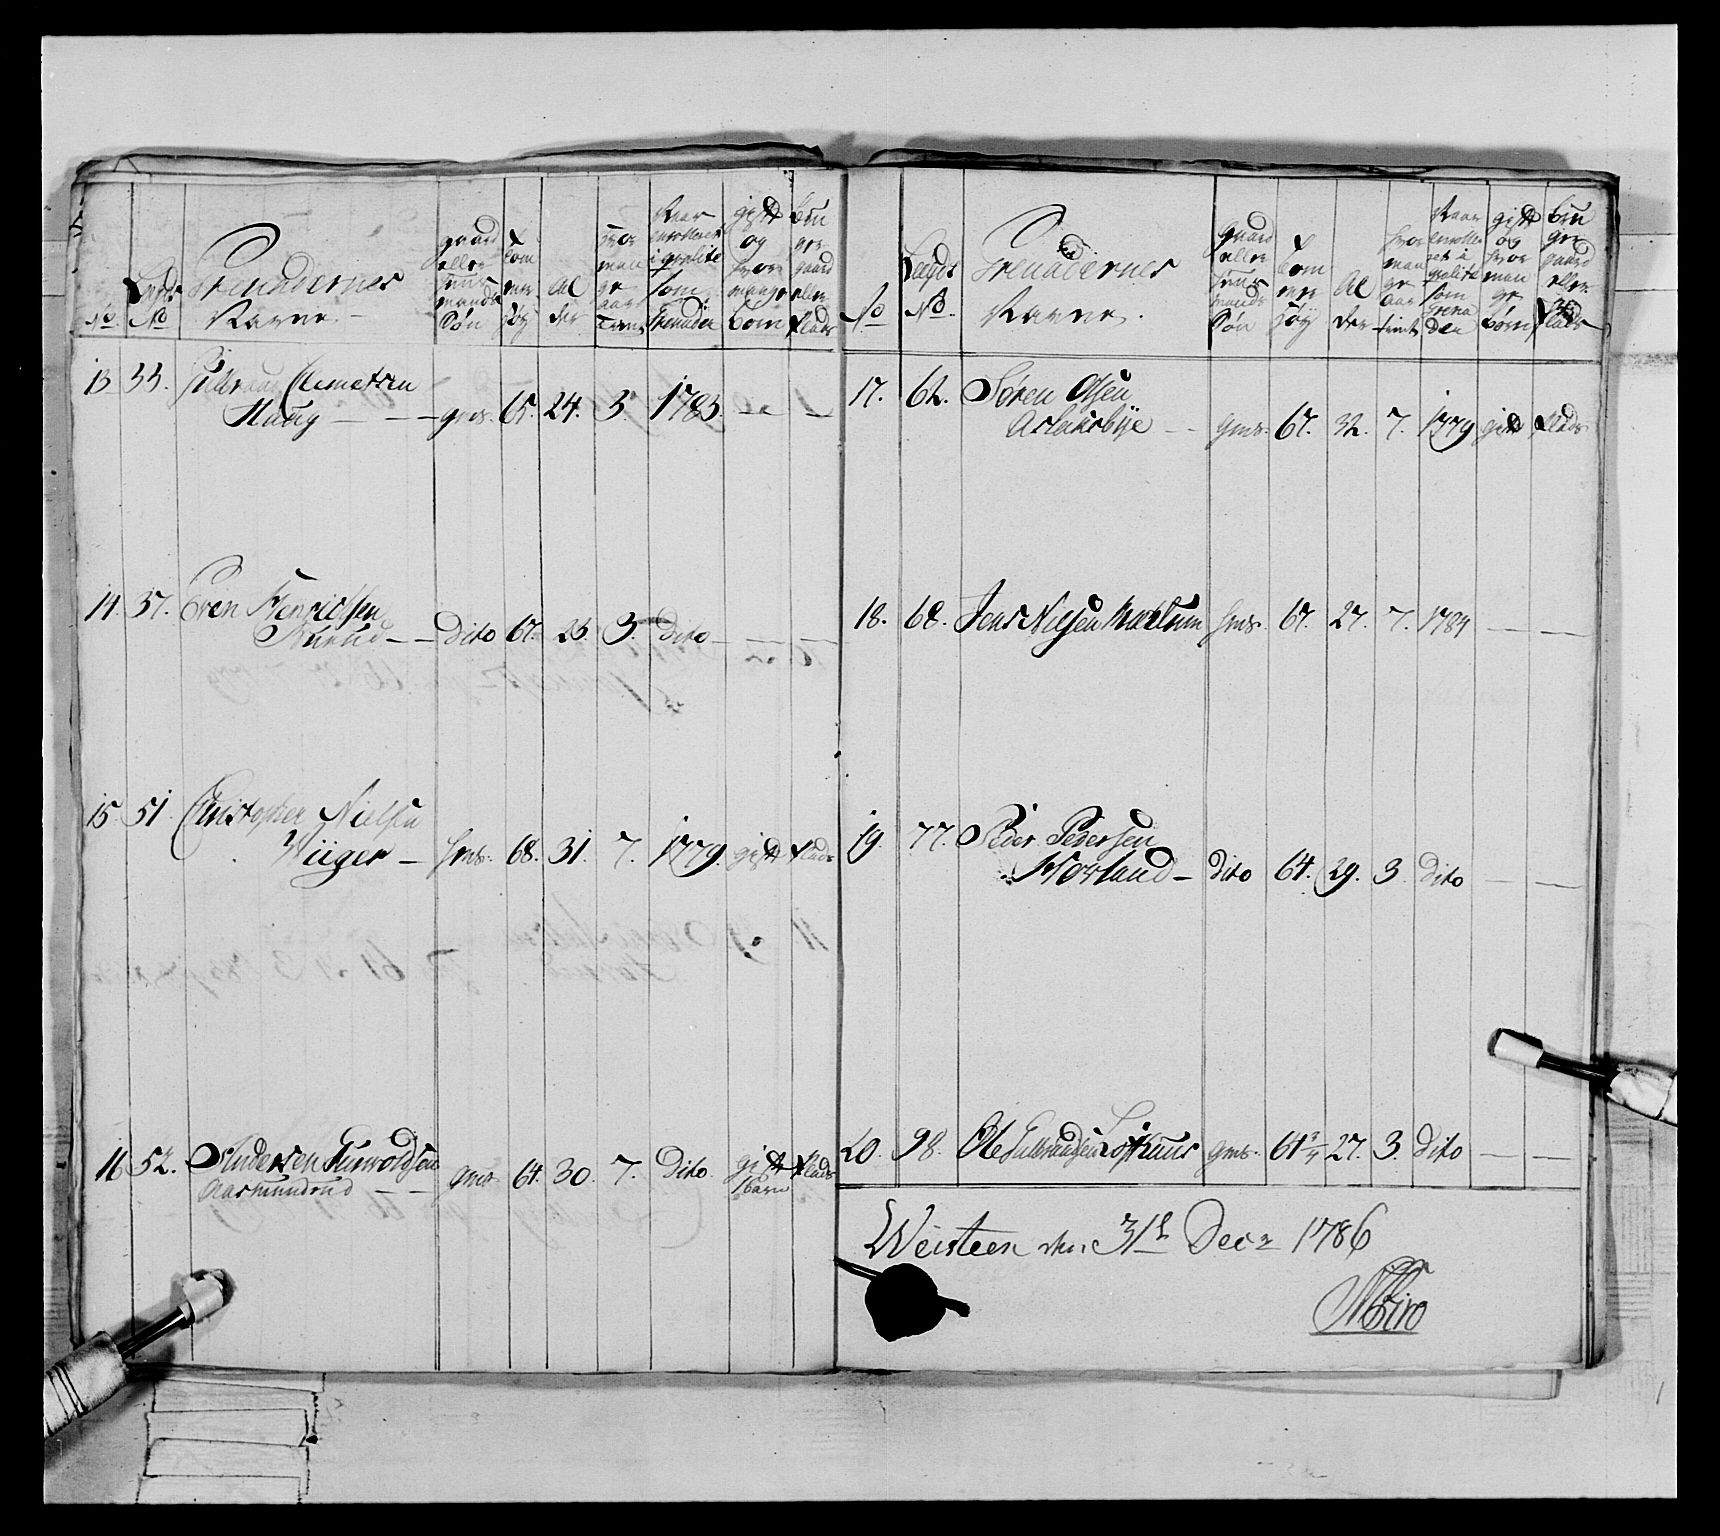 No
Lægds
No
Grenadernes
Navne
gaard
eller
huus
mands
Søn
Tom
mer
høy
Al
der
hvor
man
ge
aar
Tient
Naar
enrolleret
i qvalite
som
Grenader
gift
og
hvor
mange
børn
bru
ger
gaard
eller
Plads
13 33. Clemetsen
Haug — — gms. 65. 24. 3. 1783. — —
14. 37. Even Henrichsen
— — Dito 67. 25 3. Dito — — —
15. 51. Christopher Nielsen
Wiiger — hms. 68. 31. 7. 1779. gift Plads
16 52. Andersen Turvoldsen
Aasmundrud — — gms. 64. 30. 7. Dito gift Plads
1 barn
No
Lægds
No.
Grenadernes
Navne.
gaard
eller
huus
mands
Søn
Tom
mer
høy
Al
der
hvor
man
ge
aar
tient
Naar
enrolle
ret i
qvalite
som
Grena
der
gift
og
hvor
man
ge
børn
bru
ger
gaard
eller
Plads
17. 62. Søren Olsen
Aslaksbye — gms. 67. 32. 7. 1779 gift Plads
18. 68. Jens Nielsen Mælum hms. 67. 27. 7. 1784 — —
19. 77. Peder Pedersen
Hovland — dito 64. 29. 3. dito — —
20. 98. Ole Gulbrandsen Lofthuus gms. 64 27. 3. dito — —
Weisteen den 31t Decr 1786